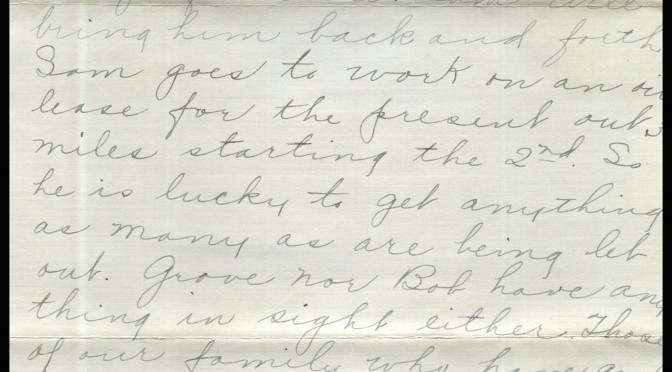 bring him back and forth
Sam goes to work on an oil
lease for the present out 5
miles starting the 2nd. So
he is lucky to get anything
as many as are being let
out. Grove nor Bob have any
thing in sight either. Those
of our family who have